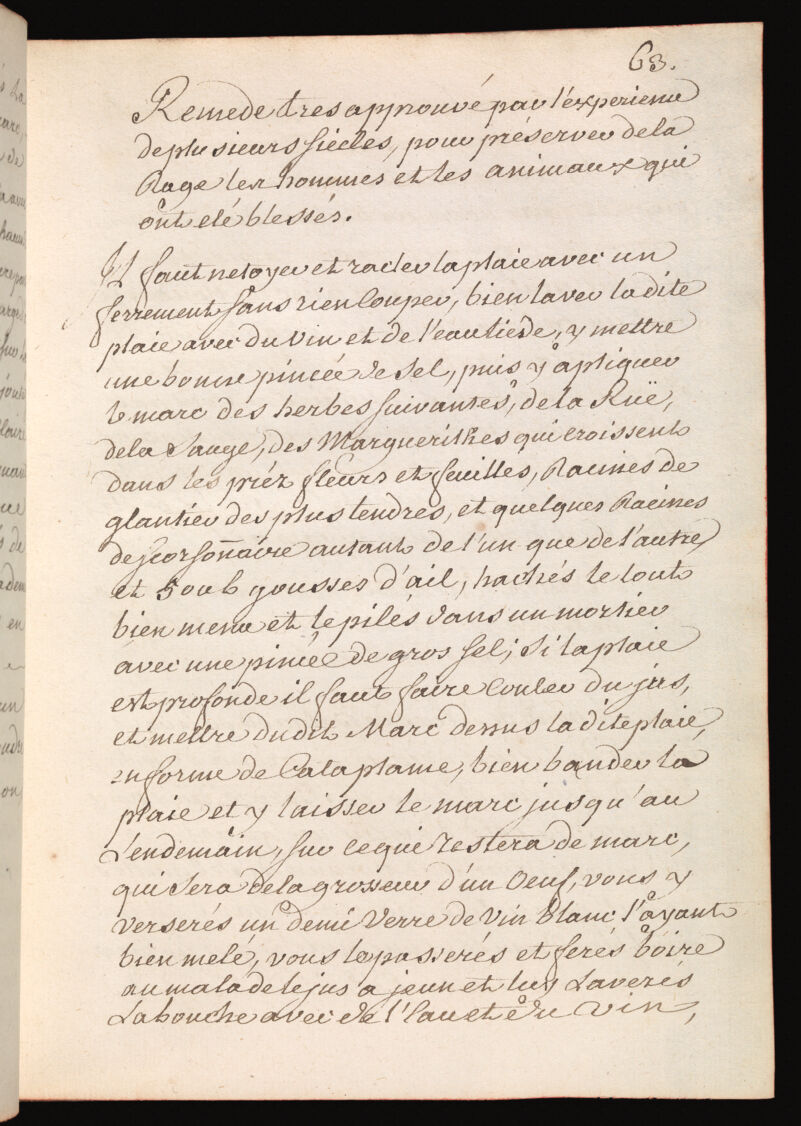 63.
Remede tres approuvé par l'experience
de plusieurs siécles, pour préserver de la
Rage les hommes et les animaux qui
ont eté blessés.
Il faut netoyer et racler la plaie avec un
ferrement sans rien Couper, bien laver la dite
plaie avec du vin et de l'eau tiede, y mettre
une bonne pincée de sel, puis y apliquer
le marc des herbes suivantes, de la Ruë,
de la Sauge, des Marguerithes qui croissent
dans les préz fleurs et feuilles, Racines de
glantier des plus tendres, et quelques Racines
de scorsonnaire autant de l'un que de l'autre,
et 5 ou 6 gousses d'ail, hachés le tout
bien menu et le pilés dans un mortier
avec une pincée de gros sel; Si la plaie
est profonde il faut faire Couler du jus,
et mettre dudit Marc dessus la dite plaie,
en forme de Cataplame, bien bander la
plaie et y laisser le marc jusqu'au
Lendemain, sur ce qui restera de marc,
qui sera de la grosseur d'un Oeuf, vous y
verserés un demi Verre de vin Blanc l'ayant
bien melé, vous le passerés et ferés boire
au malade le jus a jeun et luy Laverés
La bouche avec de l'Eau et du vin,